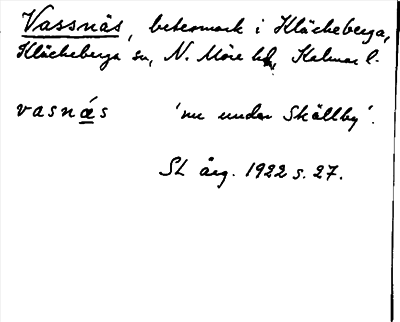 Vassnäs, betesmark i Kläckeberga,
Kläckeberga sn, N. Möre hd, Kalmar l.
vasnǽs 'nu under Skällby'.
SL årg. 1922 s. 27.